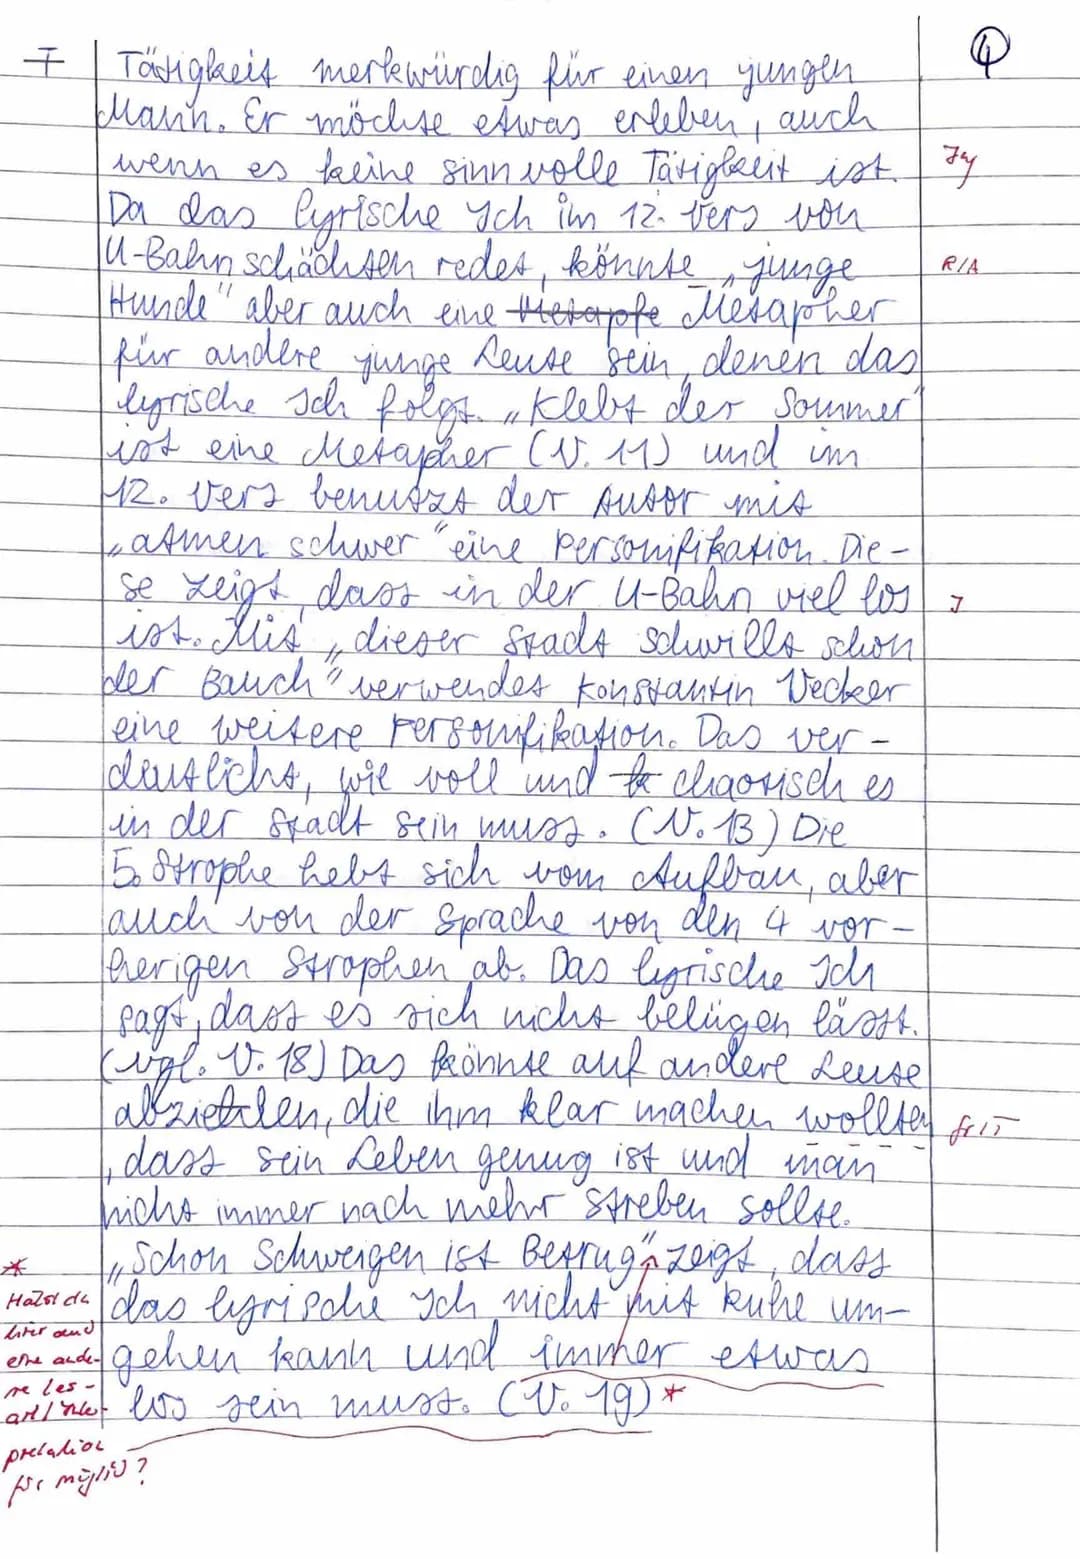 T Tätigkeit merkwürdig für einen jungen ④
Mann. Er möchte etwas erleben, auch
wenn es keine sinnvolle Tätigkeit ist.
Da das lyrische Ich im 12. Vers von
U-Bahnschächten redet, könnte „junge R/A
Hunde" aber auch eine Metapfe Metapher
für andere junge Leute sein, denen das
lyrische Ich folgt. „Klebt der Sommer"
ist eine Metapher (V. 11) und im
12. Vers benutzt der Autor mit
„atmen schwer" eine Personifikation. Die-
se zeigt, dass in der U-Bahn viel los J
ist. Mit „dieser Stadt schwillt schon
der Bauch" verwendet Konstantin Wecker
eine weitere Personifikation. Das ver-
deutlicht, wie voll und chaotisch es
in der Stadt sein muss. (V. 13) Die
5. Strophe hebt sich vom Aufbau, aber
auch von der Sprache von den 4 vor-
herigen Strophen ab. Das lyrische Ich
sagt, dass es sich nicht belügen lässt.
(vgl. V. 18) Das könnte auf andere Leute
abziehlen, die ihm klar machen wollten
, dass sein Leben genug ist und man
nicht immer nach mehr streben sollte.
„Schon Schweigen ist Betrug" zeigt, dass
das lyrische Ich nicht mit Ruhe um-
gehen kann und immer etwas
los sein muss. (V. 19) *
*
hier auch
eine ande-
re Les-
art/Inter-
pretation
für möglich?